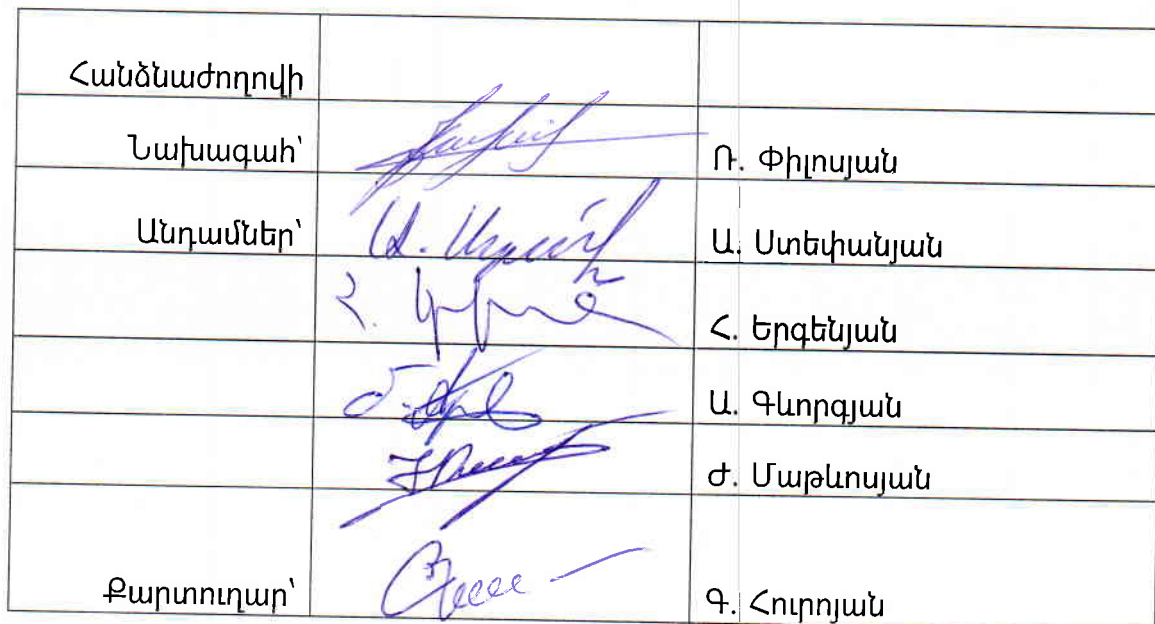 Հանձնաժողովի
Նախագահ՝ Ռ. Փիլոսյան
Անդամներ՝ Ա. Ստեփանյան
Հ. Երգենյան
Ա. Գևորգյան
Ժ. Մաթևոսյան
Քարտուղար՝ Գ. Հուրոյան